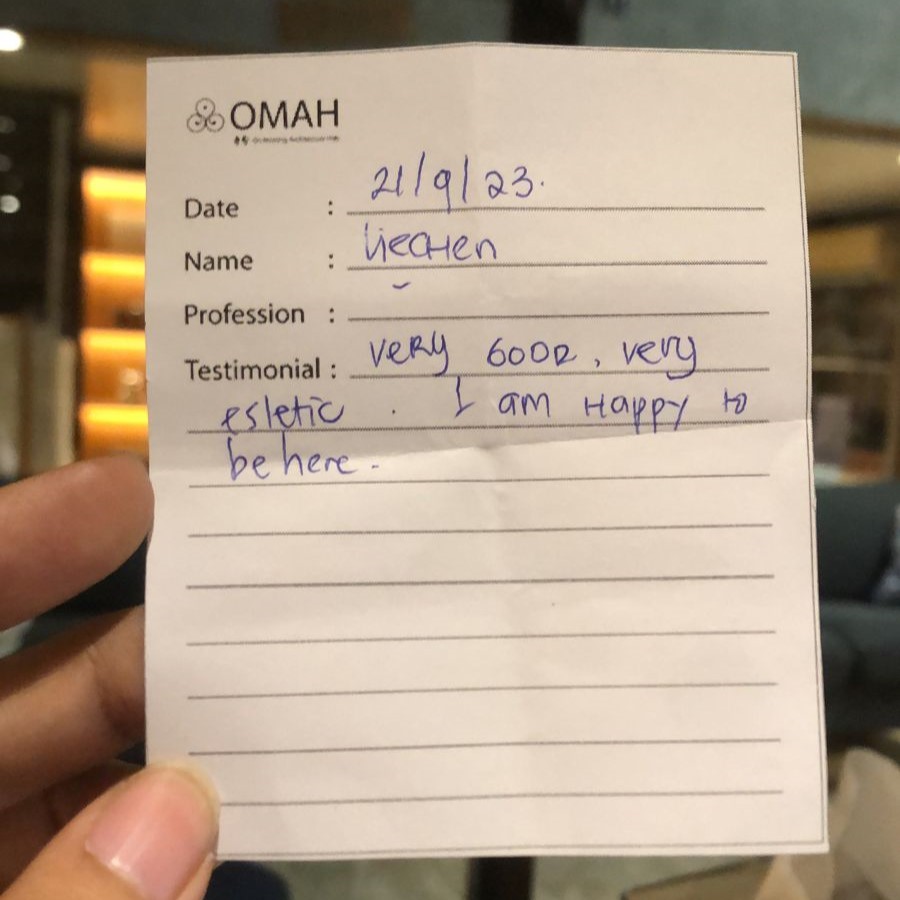 OMAH
Date : 21/9/23.
Name : Liechen
Profession : -
Testimonial : very GOOD, very
esletic . I am Happy to
be here.